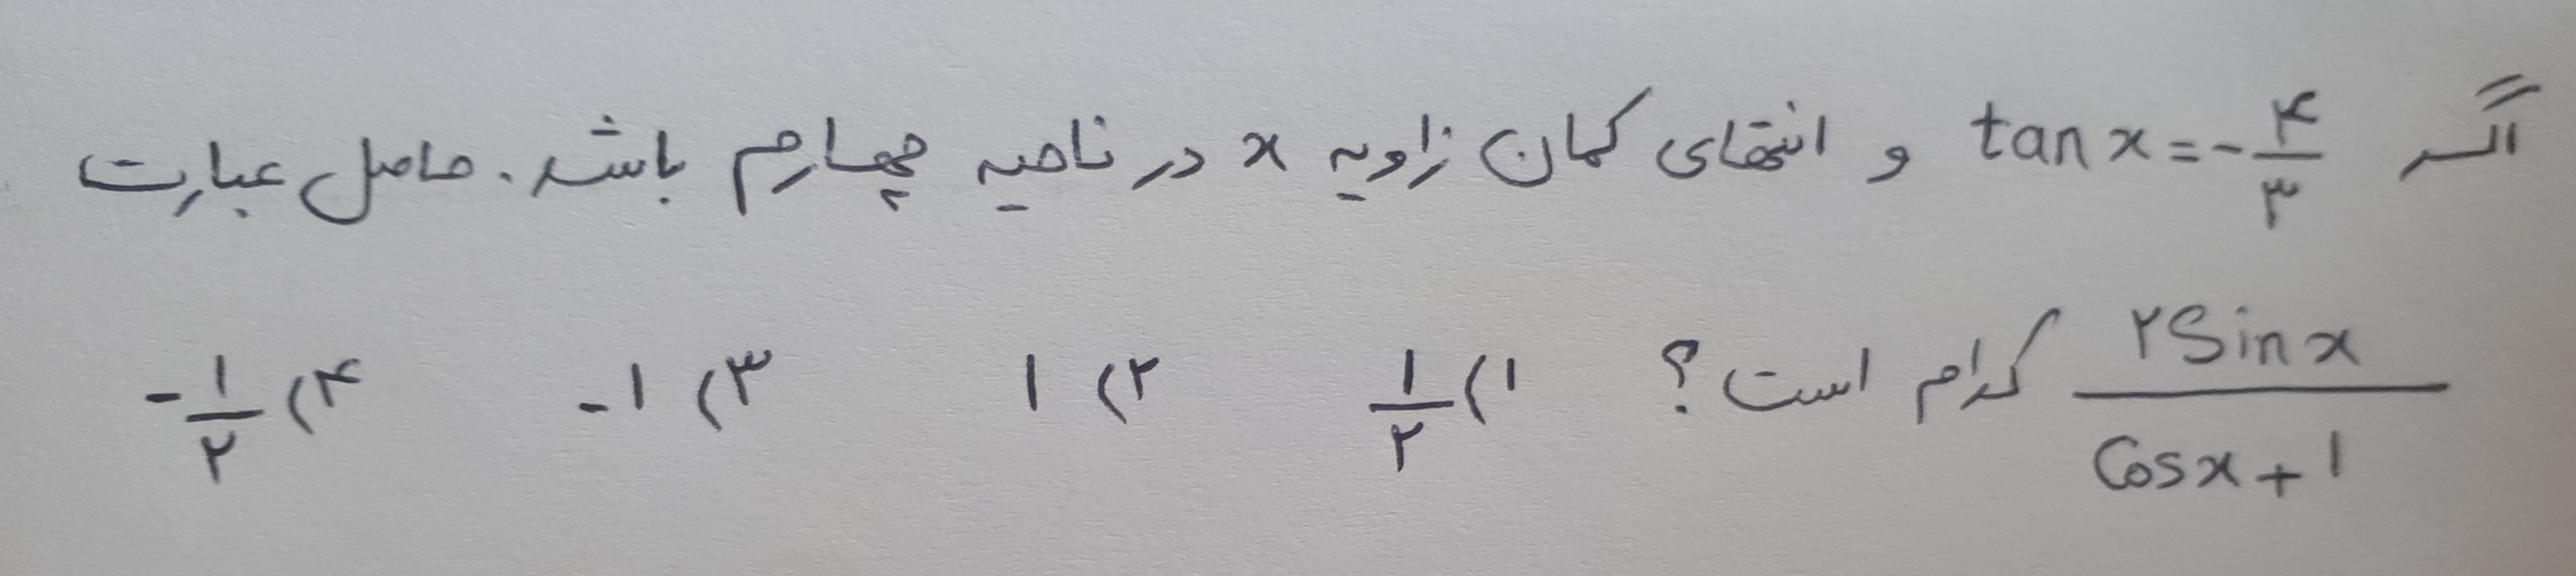 اگر tan x = -۴/۳ و انتهای کمان زاویه x در ناحیه چهارم باشد. حاصل عبارت
۲Sin x / Cos x + ۱ کدام است؟ ۱) ۱/۲ ۲) ۱ ۳) -۱ ۴) -۱/۲